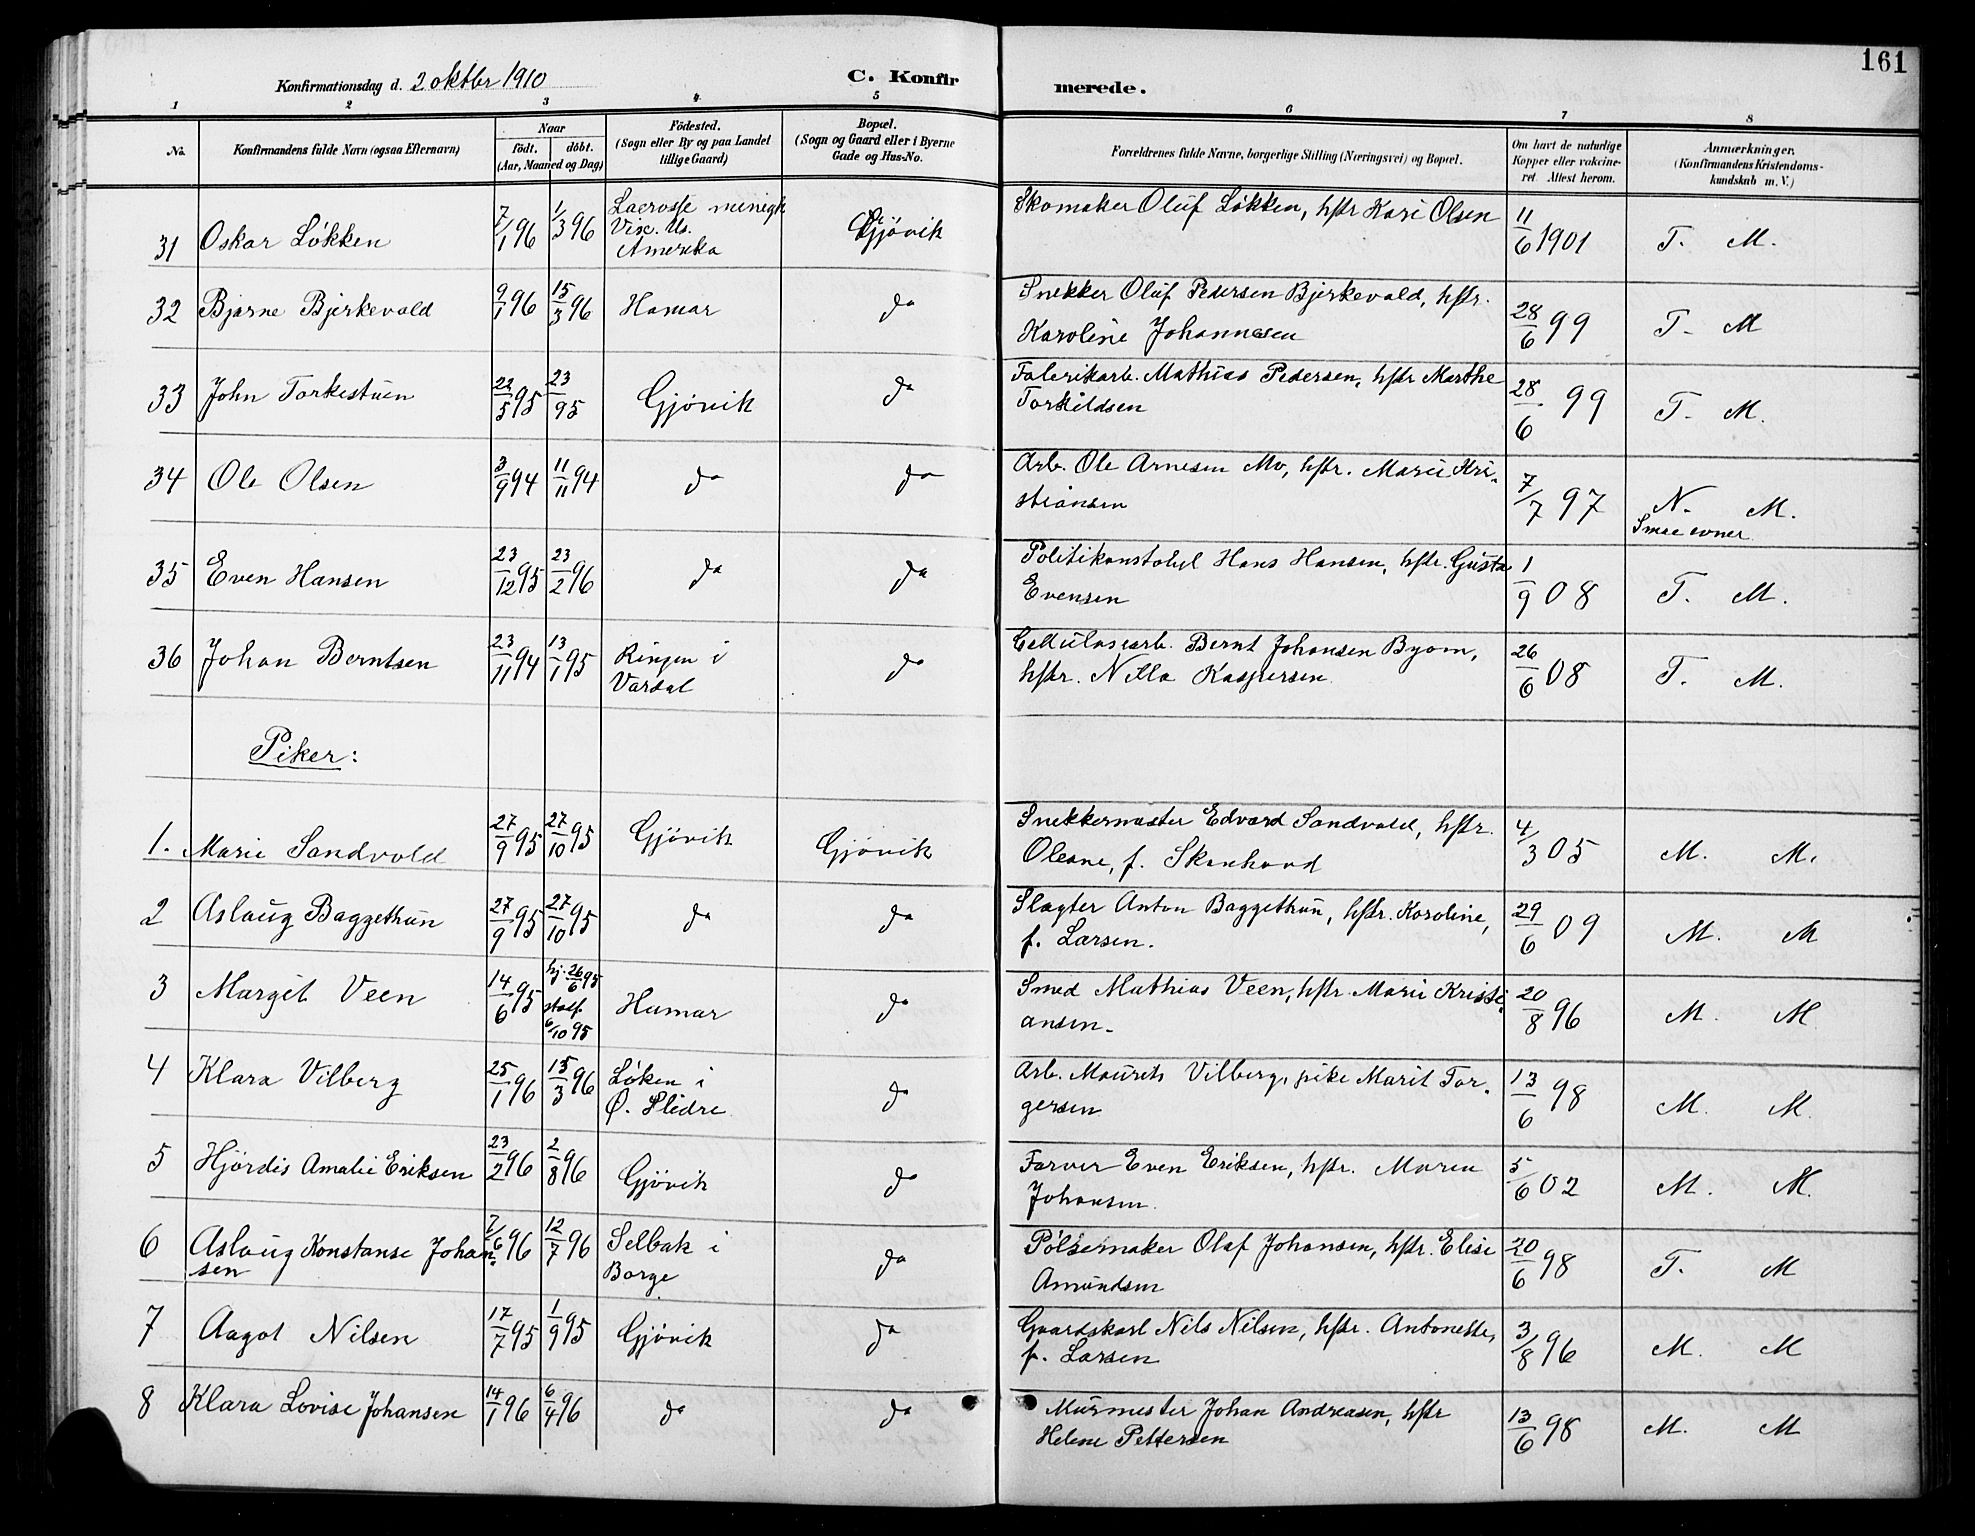 161
Konfirmationsdag d. 2 oktbr 1910
C. Konfirmerede.
1 2 3 4 5 6 7 8
No. Konfirmandens fulde Navn (ogsaa Efternavn) Naar født. døbt. (Aar, Maaned og Dag) Fødested. (Sogn eller By og paa Landet tillige Gaard) Bopæl. (Sogn og Gaard eller i Byerne Gade og Hus-No. Forældrenes fulde Navne, borgerlige Stilling (Næringsvei) og Bopæl. Om havt de naturlige Kopper eller vakcineret. Attest herom. Anmærkninger. (Konfirmandens Kristendomskundskab m. V.)
31 Oskar Løkken 7/1 96 1/3 96 Lacrosse Visc. Us. Amerika Gjøvik Skomaker Oluf Løkken, hstr Kari Olsen 11/6 1901 T. M.
32 Bjarne Bjerkevold 9/1 96 15/3 96 Hamar do Snekker Oluf Pedersen Bjerkevold, hstr. Karoline Johannesen 28/6 99 T- M
33 John Torkestuen 22/5 95 23/95 Gjøvik do Fabrikarb. Mathias Pedersen, hstr Marthe Torkildsen 28/6 99 T- M.
34 Ole Olsen 3/9 94 11/11 94 do do Arb. Ole Arnesen Mo, hstr. Marie Kristiansen 7/7 97 N. M. Smae evner
35 Even Hansen 23/12 95 23/2 96 do do Politikonstabel Hans Hansen, hstr. Gusta Evensen 1/9 08 T. M.
36 Johan Berntsen 23/11 94 13/1 95 Ringen i Vardal do Cellulosearb. Bernt Johansen Byom, hstr. Nilla Kaspersen 26/6 08 T. M.
Piker:
1. Marie Sandvold 27/9 95 27/10 95 Gjøvik Gjøvik Snekkermester Edvard Sandvold, hstr. Oleane, f. Skonhovd 4/3 05 M. M.
2 Aslaug Baggethun 27/9 95 27/10 95 do do Slagter Anton Baggethun, hstr. Karoline, f. Larsen. 29/6 09 M. M
3 Margit Veen 14/6 95 hj. 26/6 95 stadf. 6/10 95 Hamar do Smed Mathias Veen, hstr. Marie Kristiansen- 20/8 96 M. M
4 Klara Vilberg 25/1 96 15/3 96 Løken i Ø. Slidre do Arb. Maurits Vilberg, pike Marit Torgersen 13/6 98 M. M.
5 Hjørdis Amalie Eriksen 23/2 96 2/8 96 Gjøvik do Farver Even Eriksen, hstr. Maren Johansen. 5/6 02 M. M.
6 Aslaug Konstanse Johansen 7/6 96 12/7 96 Selbak i Borge do Pølsemaker Olaf Johansen, hstr. Elise Amundsen 20/6 98 T. M
7 Aagot Nilsen 17/7 95 1/9 95 Gjøvik do Gaardskarl Nils Nilsen, hstr. Antonette, f. Larsen 3/8 96 M. M
8 Klara Lovise Johansen 14/1 96 6/4 96 do do Murmester Johan Andreasen, hstr Helene Pettersen 13/6 98 M. M